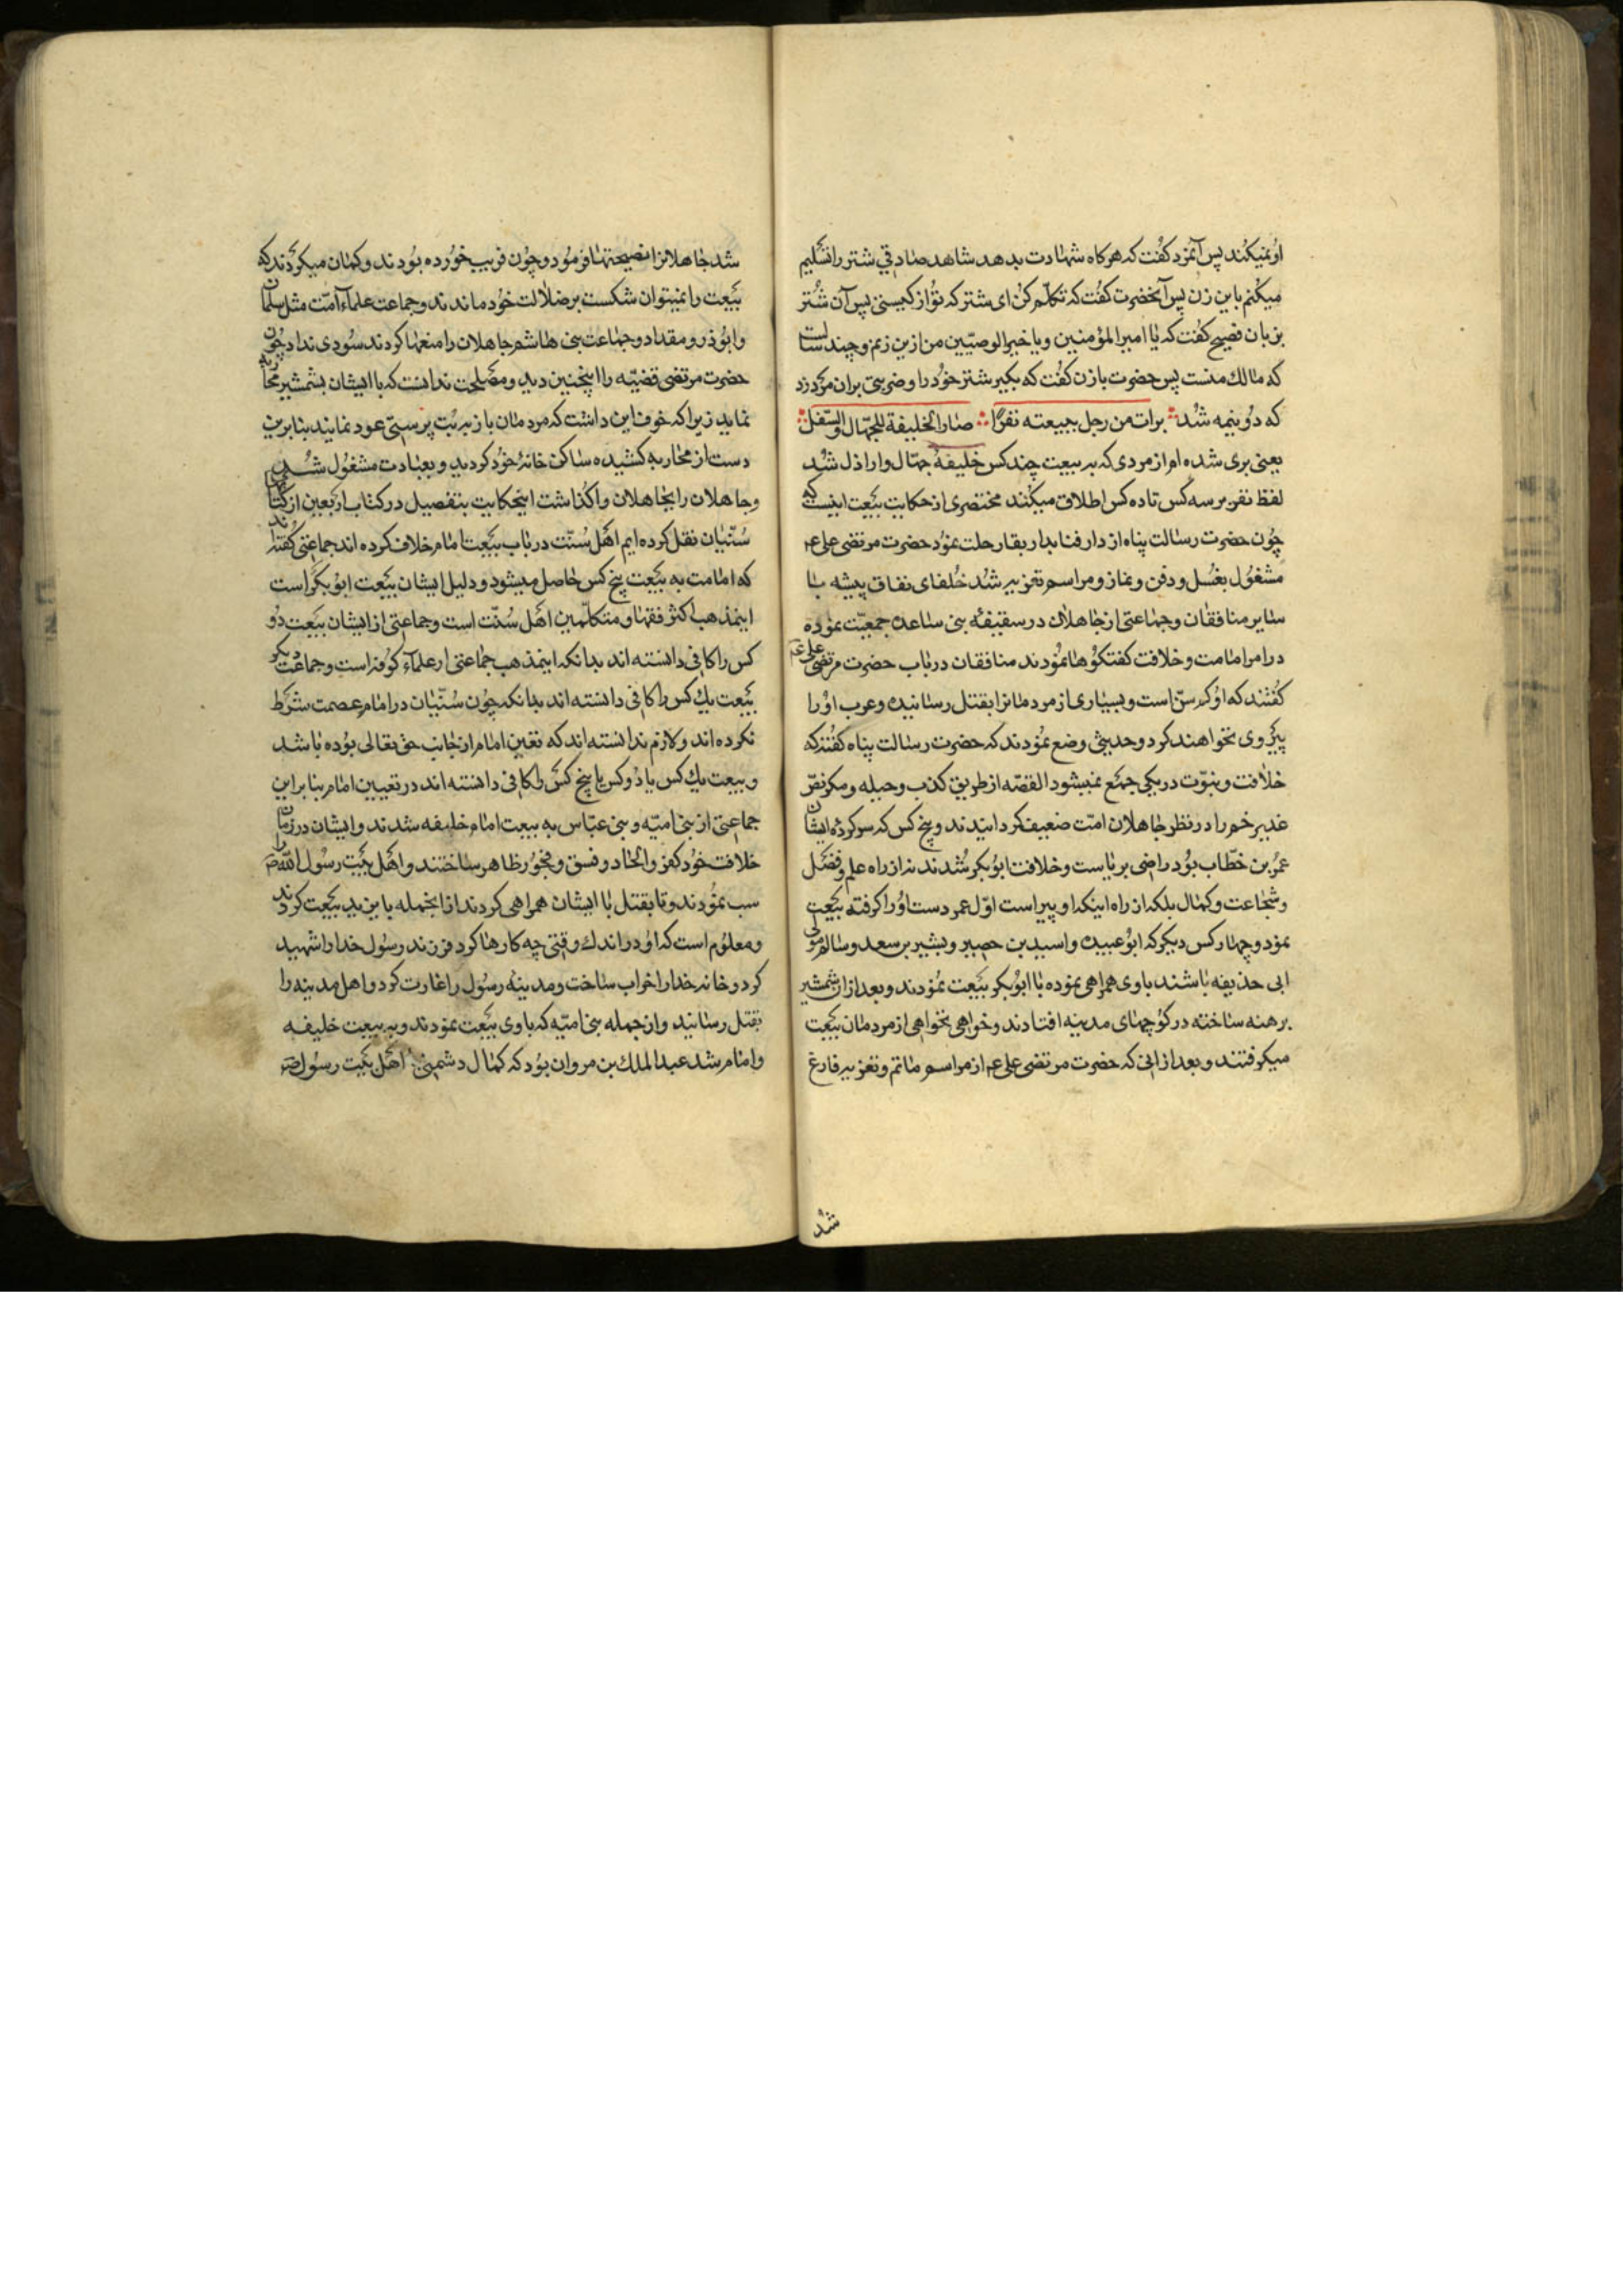 او نمیکند پس آنمرد کفت که هرکاه شهادت بدهد شاهد صادقی شتر را تسلیم
میکنم باین زن پس آنحضرت کفت که تکلم کن ای شتر که تو از کیستی پس آن شتر
بزبان فصیح کفت که یا امیرالمؤمنین ویا خیرالوصیّین من ازین زنم و چند سالست
که مالك منست پس حضرت بازن کفت که بکیر شتر خود را و ضربتی بران مرد زد
که دو نیمه شد برات من رجل ببیعته نفر صار الخلیفة للجهّال والسّفل
یعنی بری شده ام از مردی که به بیعت چند کس خلیفۀ جهّال واراذل شد
لفظ نفر بر سه کس تا ده کس اطلاق میکنند مختصری از حکایت بیعت اینست که
چون حضرت رسالت پناه از دار فنا بدار بقا رحلت نمود حضرت مرتضی علی عم
مشغول بغسل و دفن و نماز و مراسم تعزیه شد خلفای نفاق پیشه با
سایر منافقان وجماعتی از جاهلان در سقیفۀ بنی ساعده جمعیّت نموده
در امر امامت و خلافت کفتکوها نمودند منافقان در باب حضرت مرتضی علی عم
کفتند که او کم سنّ است و بسیاری از مردمانرا بقتل رسانیده و عرب اورا
پیروی نخواهند کرد وحدیثی وضع نمودند که حضرت رسالت پناه کفتند که
خلافت ونبوّت در یکی جمع نمیشود القصّه از طریق کذب وحیله ومکر نصّ
غدیر خم را در نظر جاهلان امّت ضعیف کردانیدند و پنج کس که سرکردۀ ایشان
عمر بن خطّاب بود راضی بریاست و خلافت ابوبکر شدند نه از راه علم وفضل
وشجاعت وکمال بلکه از راه اینکه او پیر است اوّل عمر دست اورا کرفته بیعت
نمود وچهار کس دیکر که ابو عبیده واسید بن حصیر وبشیر بن سعد وسالم مولی
ابی حذیفه باشند باوی همراهی نموده با ابوبکر بیعت نمودند وبعد ازان شمشیر
برهنه ساخته در کوچهای مدینه افتادند وخواهی نخواهی از مردمان بیعت
میکرفتند و بعد از انی که حضرت مرتضی علی عم از مراسم ماتم وتعزیه فارغ
شد
شد جاهلانرا نصیحتها فرمود وچون فریب خورده بودند وکمان میکردند که
بیعت را نمیتوان شکست بر ضلالت خود ماندند وجماعت علماء امّت مثل سلمان
وابوذر ومقداد وجماعت بنی هاشم جاهلان را منعها کردند سودی نداد چون
حضرت مرتضی قضیّه را اینچنین دید ومصلحت ندانست که با ایشان بشمشیر محاربه
نماید زیرا که خوف این داشت که مردمان باز به بت پرستی عود نمایند بنابرین
دست از محاربه کشیده ساکن خانۀ خود کردید وبعبادت مشغول شد
وجاهلان را بجاهلان واکذاشت اینحکایت بتفصیل در کتاب اربعین از کتابهای
سنّیان نقل کرده ایم اهل سنّت در باب بیعت امام خلاف کرده اند جماعتی کفته اند
که امامت به بیعت پنج کس حاصل میشود ودلیل ایشان بیعت ابوبکر است
اینمذهب اکثر فقها ومتکلّمین اهل سنّت است وجماعتی از ایشان بیعت دو
کس را کافی دانسته اند بدانکه اینمذهب جماعتی از علماء کوفه است وجماعت دیکر
بیعت یك کس را کافی دانسته اند بدانکه چون سنّیان در امام عصمت شرط
نکرده اند ولازم ندانسته اند که تعین امام از جانب حق تعالی بوده باشد
وبیعت یك کس یا دو کس یا پنج کس را کافی دانسته اند در تعیین امام بنابراین
جماعتی از بنی امیّه وبنی عبّاس به بیعت امام خلیفه شدند وایشان در زمان
خلافت خود کفر والحاد وفسق وفجور ظاهر ساختند واهل بیت رسول الله را
سب نمودند وتا بقتل با ایشان همراهی کردند از انجمله بایزید بیعت کردند
ومعلوم است که او در اندك وقتی چه کارها کرد فرزند رسول خدا را شهید
کرد وخانه خدا را خراب ساخت ومدینۀ رسول را غارت کرد واهل مدینه را
بقتل رسانید وازجمله بنی امیّه که باوی بیعت نمودند وبه بیعت خلیفه
وامام شد عبدالملك بن مروان بود که کمال دشمنی اهل بیت رسول